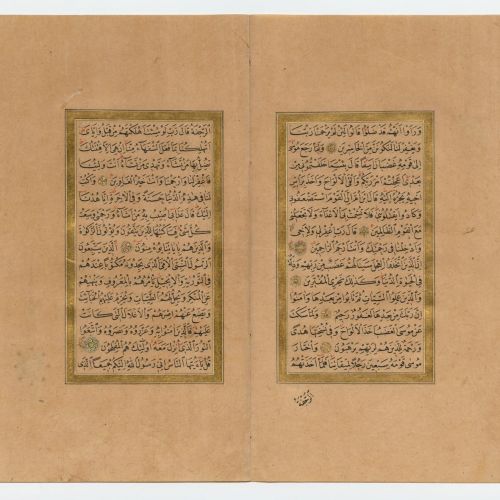 وَرَاَوْا اَنَّهُمْ قَدْ ضَلُّوا قَالُوا لَئِنْ لَمْ يَرْحَمْنَا رَبُّنَا
وَيَغْفِرْ لَنَا لَنَكُونَنَّ مِنَ الْخَاسِرِينَ وَلَمَّا رَجَعَ مُوسٰى
اِلٰى قَوْمِهِ غَضْبَانَ اَسِفًا قَالَ بِئْسَمَا خَلَفْتُمُونِى مِنْ
بَعْدِى اَعَجِلْتُمْ اَمْرَ رَبِّكُمْ وَاَلْقَى الْاَلْوَاحَ وَاَخَذَ بِرَاْسِ
اَخِيهِ يَجُرُّهُ اِلَيْهِ قَالَ ابْنَ اُمَّ اِنَّ الْقَوْمَ اسْتَضْعَفُونِى
وَكَادُوا يَقْتُلُونَنِى فَلَا تُشْمِتْ بِىَ الْاَعْدَاءَ وَلَا تَجْعَلْنِى
مَعَ الْقَوْمِ الظَّالِمِينَ قَالَ رَبِّ اغْفِرْ لِى وَلِاَخِى
وَاَدْخِلْنَا فِى رَحْمَتِكَ وَاَنْتَ اَرْحَمُ الرَّاحِمِينَ
اِنَّ الَّذِينَ اتَّخَذُوا الْعِجْلَ سَيَنَالُهُمْ غَضَبٌ مِنْ رَبِّهِمْ وَذِلَّةٌ
فِى الْحَيٰوةِ الدُّنْيَا وَكَذٰلِكَ نَجْزِى الْمُفْتَرِينَ
وَالَّذِينَ عَمِلُوا السَّيِّئَاتِ ثُمَّ تَابُوا مِنْ بَعْدِهَا وَاٰمَنُوا
اِنَّ رَبَّكَ مِنْ بَعْدِهَا لَغَفُورٌ رَحِيمٌ وَلَمَّا سَكَتَ
عَنْ مُوسَى الْغَضَبُ اَخَذَ الْاَلْوَاحَ وَفِى نُسْخَتِهَا هُدًى
وَرَحْمَةٌ لِلَّذِينَ هُمْ لِرَبِّهِمْ يَرْهَبُونَ وَاخْتَارَ
مُوسٰى قَوْمَهُ سَبْعِينَ رَجُلًا لِمِيقَاتِنَا فَلَمَّا اَخَذَتْهُمُ
الرَّجْفَةُ
الرَّجْفَةُ قَالَ رَبِّ لَوْ شِئْتَ اَهْلَكْتَهُمْ مِنْ قَبْلُ وَاِيَّاىَ
اَتُهْلِكُنَا بِمَا فَعَلَ السُّفَهَاءُ مِنَّا اِنْ هِىَ اِلَّا فِتْنَتُكَ
تُضِلُّ بِهَا مَنْ تَشَاءُ وَتَهْدِى مَنْ تَشَاءُ اَنْتَ وَلِيُّنَا
فَاغْفِرْ لَنَا وَارْحَمْنَا وَاَنْتَ خَيْرُ الْغَافِرِينَ وَاكْتُبْ
لَنَا فِى هٰذِهِ الدُّنْيَا حَسَنَةً وَفِى الْاٰخِرَةِ اِنَّا هُدْنَا
اِلَيْكَ قَالَ عَذَابِى اُصِيبُ بِهِ مَنْ اَشَاءُ وَرَحْمَتِى وَسِعَتْ
كُلَّ شَىْءٍ فَسَاَكْتُبُهَا لِلَّذِينَ يَتَّقُونَ وَيُؤْتُونَ الزَّكٰوةَ
وَالَّذِينَ هُمْ بِاٰيَاتِنَا يُؤْمِنُونَ اَلَّذِينَ يَتَّبِعُونَ
الرَّسُولَ النَّبِىَّ الْاُمِّىَّ الَّذِى يَجِدُونَهُ مَكْتُوبًا عِنْدَهُمْ
فِى التَّوْرٰيةِ وَالْاِنْجِيلِ يَاْمُرُهُمْ بِالْمَعْرُوفِ وَيَنْهٰيهُمْ
عَنِ الْمُنْكَرِ وَيُحِلُّ لَهُمُ الطَّيِّبَاتِ وَيُحَرِّمُ عَلَيْهِمُ الْخَبَائِثَ
وَيَضَعُ عَنْهُمْ اِصْرَهُمْ وَالْاَغْلَالَ الَّتِى كَانَتْ
عَلَيْهِمْ فَالَّذِينَ اٰمَنُوا بِهِ وَعَزَّرُوهُ وَنَصَرُوهُ وَاتَّبَعُوا
النُّورَ الَّذِى اُنْزِلَ مَعَهُ اُولٰئِكَ هُمُ الْمُفْلِحُونَ
قُلْ يَا اَيُّهَا النَّاسُ اِنِّى رَسُولُ اللّٰهِ اِلَيْكُمْ جَمِيعًا الَّذِى